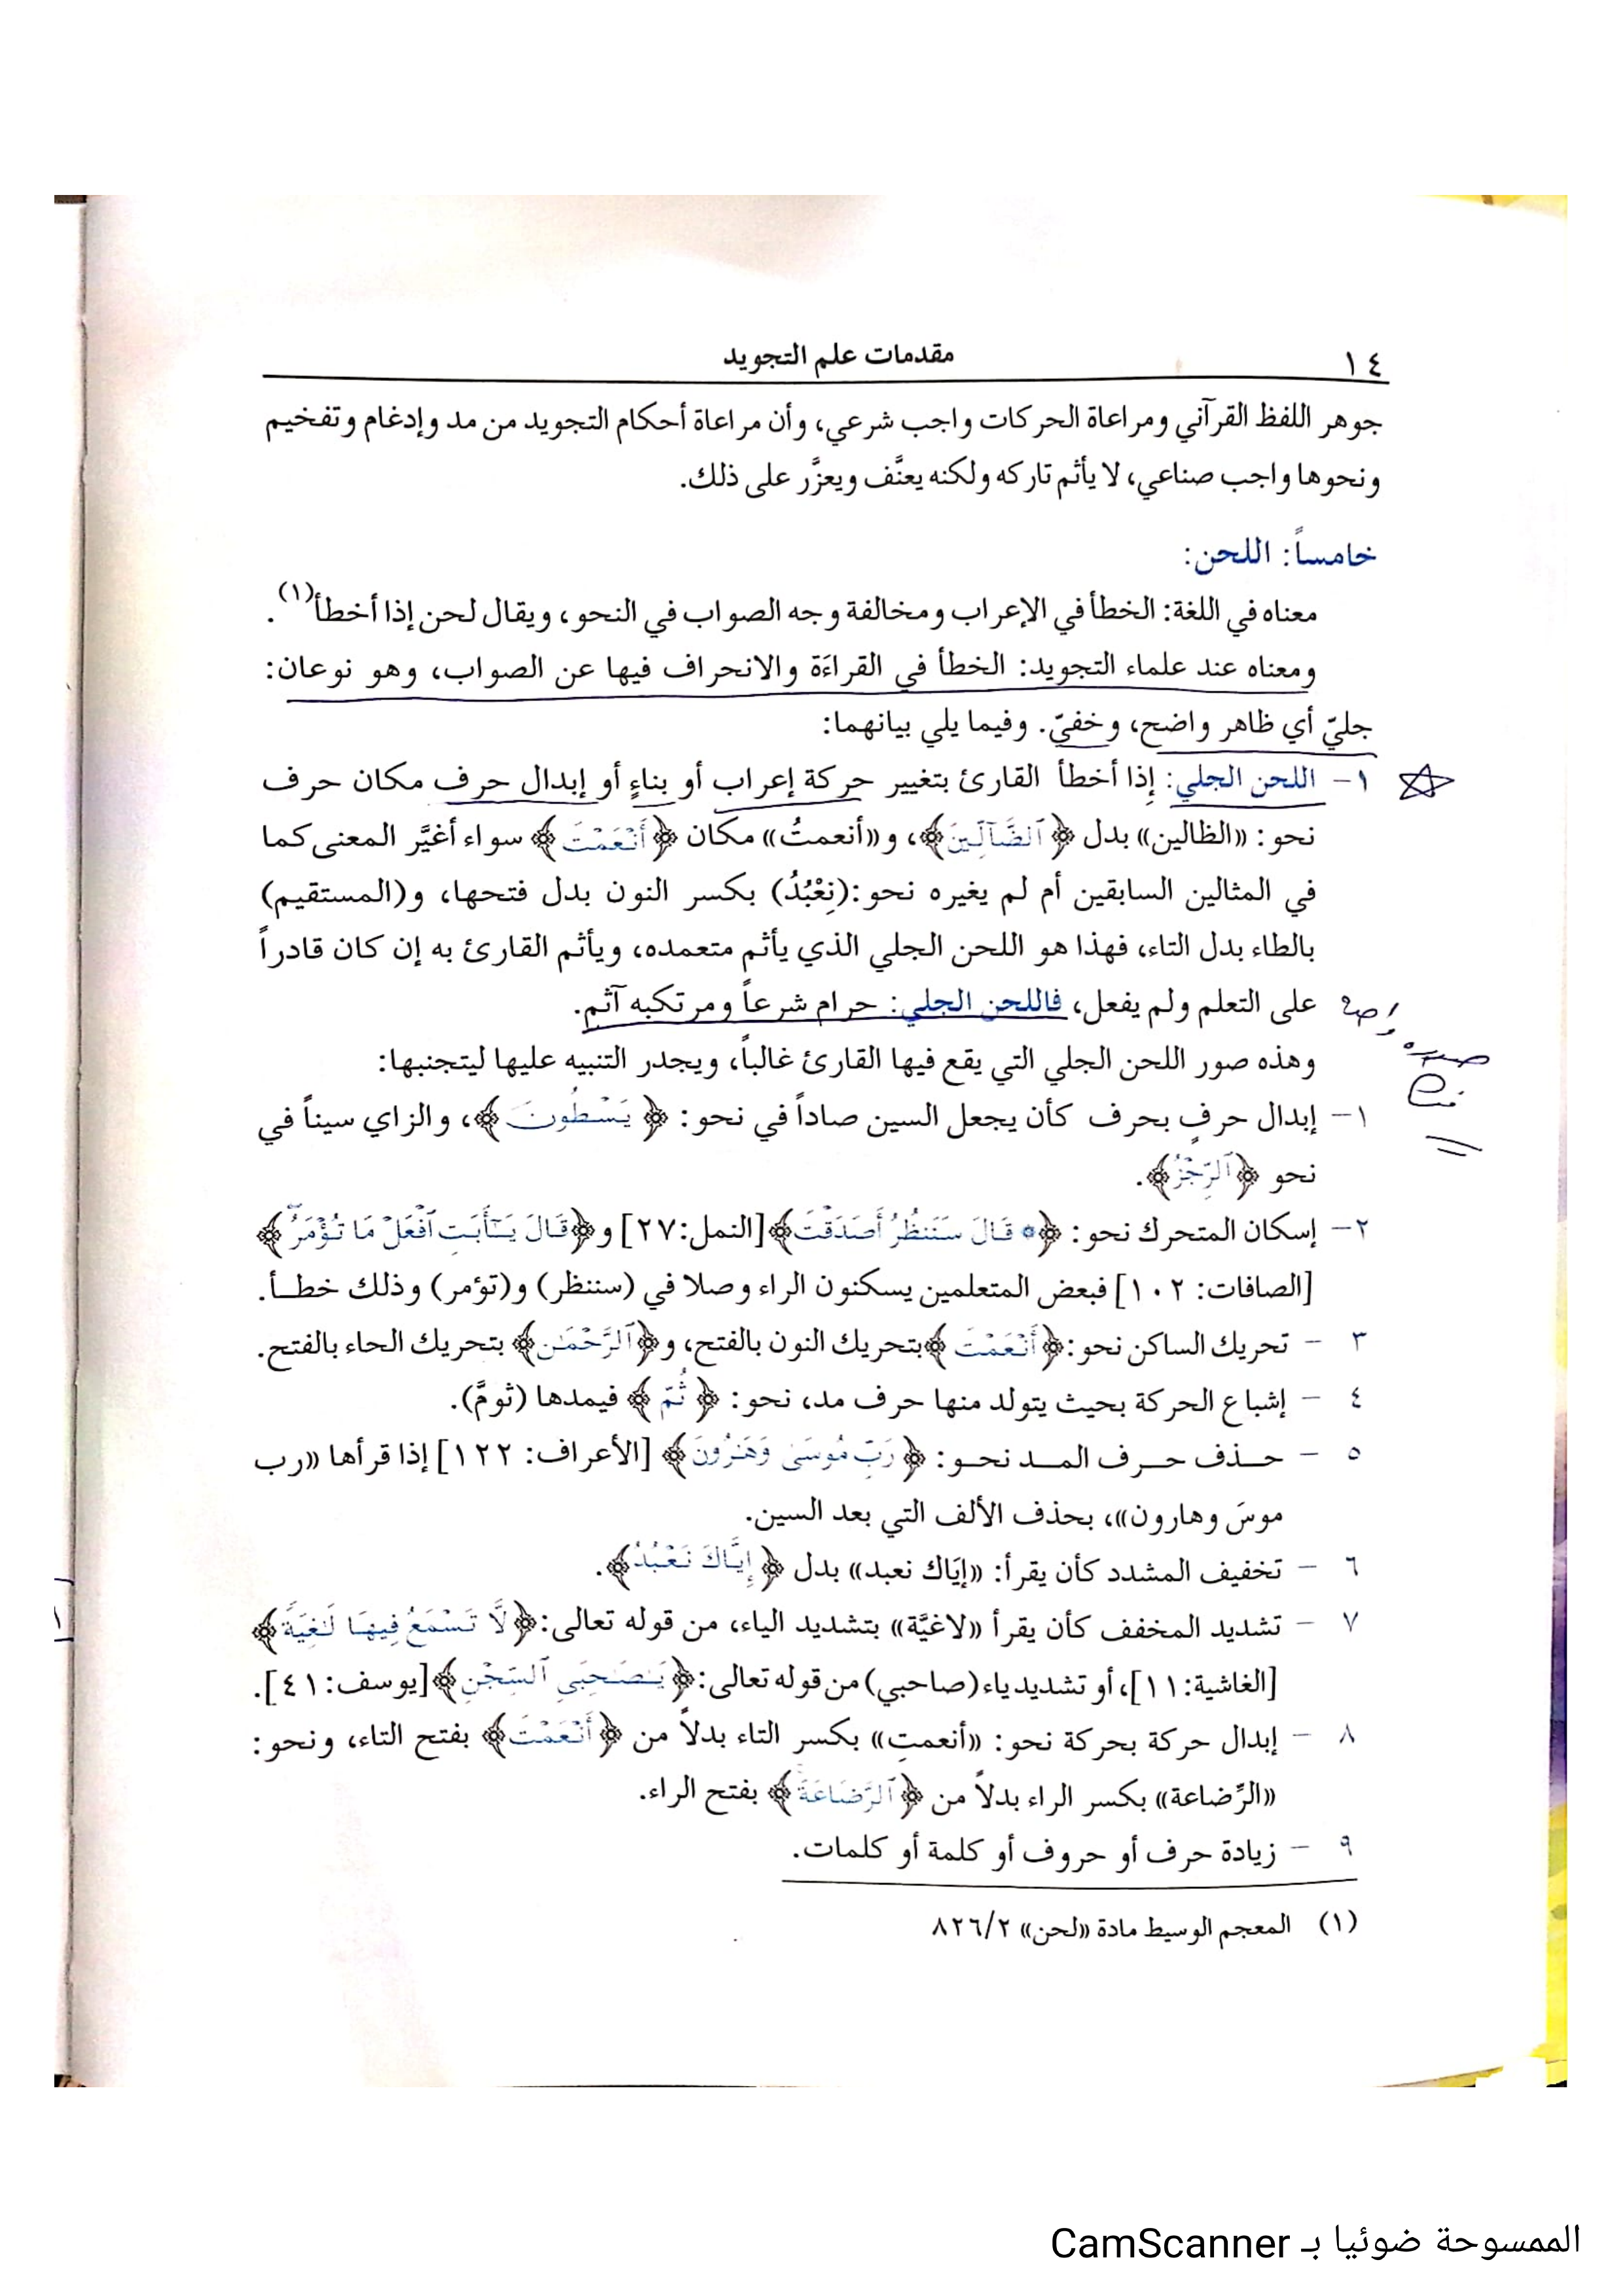 ١٤
مقدمات علم التجويد
جوهر اللفظ القرآني ومراعاة الحركات واجب شرعي، وأن مراعاة أحكام التجويد من مد وإدغام وتفخيم
ونحوها واجب صناعي، لا يأثم تاركه ولكنه يعنَّف ويعزَّر على ذلك.
خامساً: اللحن:
معناه في اللغة: الخطأ في الإعراب ومخالفة وجه الصواب في النحو، ويقال لحن إذا أخطأ(١).
ومعناه عند علماء التجويد: الخطأ في القراءَة والانحراف فيها عن الصواب، وهو نوعان:
جليّ أي ظاهر واضح، وخفيّ. وفيما يلي بيانهما:
١- اللحن الجلي: إِذا أخطأ القارئ بتغيير حركة إعراب أو بناءٍ أو إبدال حرف مكان حرف
نحو: «الظالين» بدل ﴿ٱلضَّآلِّينَ﴾، و«أنعمتُ» مكان ﴿أَنْعَمْتَ﴾ سواء أغيَّر المعنى كما
في المثالين السابقين أم لم يغيره نحو:(نِعْبُدُ) بكسر النون بدل فتحها، و(المستقيم)
بالطاء بدل التاء، فهذا هو اللحن الجلي الذي يأثم متعمده، ويأثم القارئ به إن كان قادراً
على التعلم ولم يفعل، فاللحن الجلي: حرام شرعاً ومرتكبه آثم.
وهذه صور اللحن الجلي التي يقع فيها القارئ غالباً، ويجدر التنبيه عليها ليتجنبها:
١- إبدال حرفٍ بحرف كأن يجعل السين صاداً في نحو: ﴿يَسْطُونَ﴾، والزاي سيناً في
نحو ﴿ٱلرِّجْزُ﴾.
٢- إسكان المتحرك نحو: ﴿۞ قَالَ سَنَنظُرُ أَصَدَقْتَ﴾[النمل:٢٧] و﴿قَالَ يَٰٓأَبَتِ ٱفْعَلْ مَا تُؤْمَرُ﴾
[الصافات: ١٠٢] فبعض المتعلمين يسكنون الراء وصلا في (سننظر) و(تؤمر) وذلك خطـأ.
٣ - تحريك الساكن نحو:﴿أَنْعَمْتَ﴾بتحريك النون بالفتح، و﴿ٱلرَّحْمَٰنِ﴾ بتحريك الحاء بالفتح.
٤ - إشباع الحركة بحيث يتولد منها حرف مد، نحو: ﴿ثُمَّ﴾ فيمدها (ثومَّ).
٥ - حـذف حـرف المـد نحـو: ﴿رَبِّ مُوسَىٰ وَهَٰرُونَ﴾ [الأعراف: ١٢٢] إذا قرأها «رب
موسَ وهارون»، بحذف الألف التي بعد السين.
٦ - تخفيف المشدد كأن يقرأ: «إيَاك نعبد» بدل ﴿إِيَّاكَ نَعْبُدُ﴾.
٧ - تشديد المخفف كأن يقرأ «لاغيَّة» بتشديد الياء، من قوله تعالى:﴿لَّا تَسْمَعُ فِيهَا لَٰغِيَةً﴾
[الغاشية:١١]، أو تشديد ياء (صاحبي) من قوله تعالى:﴿يَٰصَٰحِبَيِ ٱلسِّجْنِ﴾[يوسف:٤١].
٨ - إبدال حركة بحركة نحو: «أنعمتِ» بكسر التاء بدلاً من ﴿أَنْعَمْتَ﴾ بفتح التاء، ونحو:
«الرِّضاعة» بكسر الراء بدلاً من ﴿ٱلرَّضَاعَةَ﴾ بفتح الراء.
٩ - زيادة حرف أو حروف أو كلمة أو كلمات.
(١) المعجم الوسيط مادة «لحن» ٨٢٦/٢
الممسوحة ضوئيا بـ CamScanner